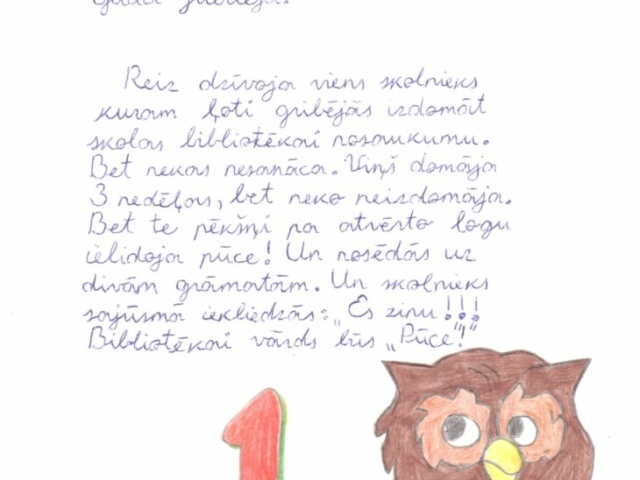 Reiz dzīvoja viens skolnieks
kuram ļoti gribējās izdomāt
skolas bibliotēkai nosaukumu.
Bet nekas nesanāca. Viņš domāja
3 nedēļas, bet neko neizdomāja.
Bet te pēkšņi pa atvērto logu
ielidoja pūce! Un nosēdās uz
divām grāmatām. Un skolnieks
sajūsmā iekliedzās: „Es zinu!!!
Bibliotēkai vārds būs „Pūce"!"
1